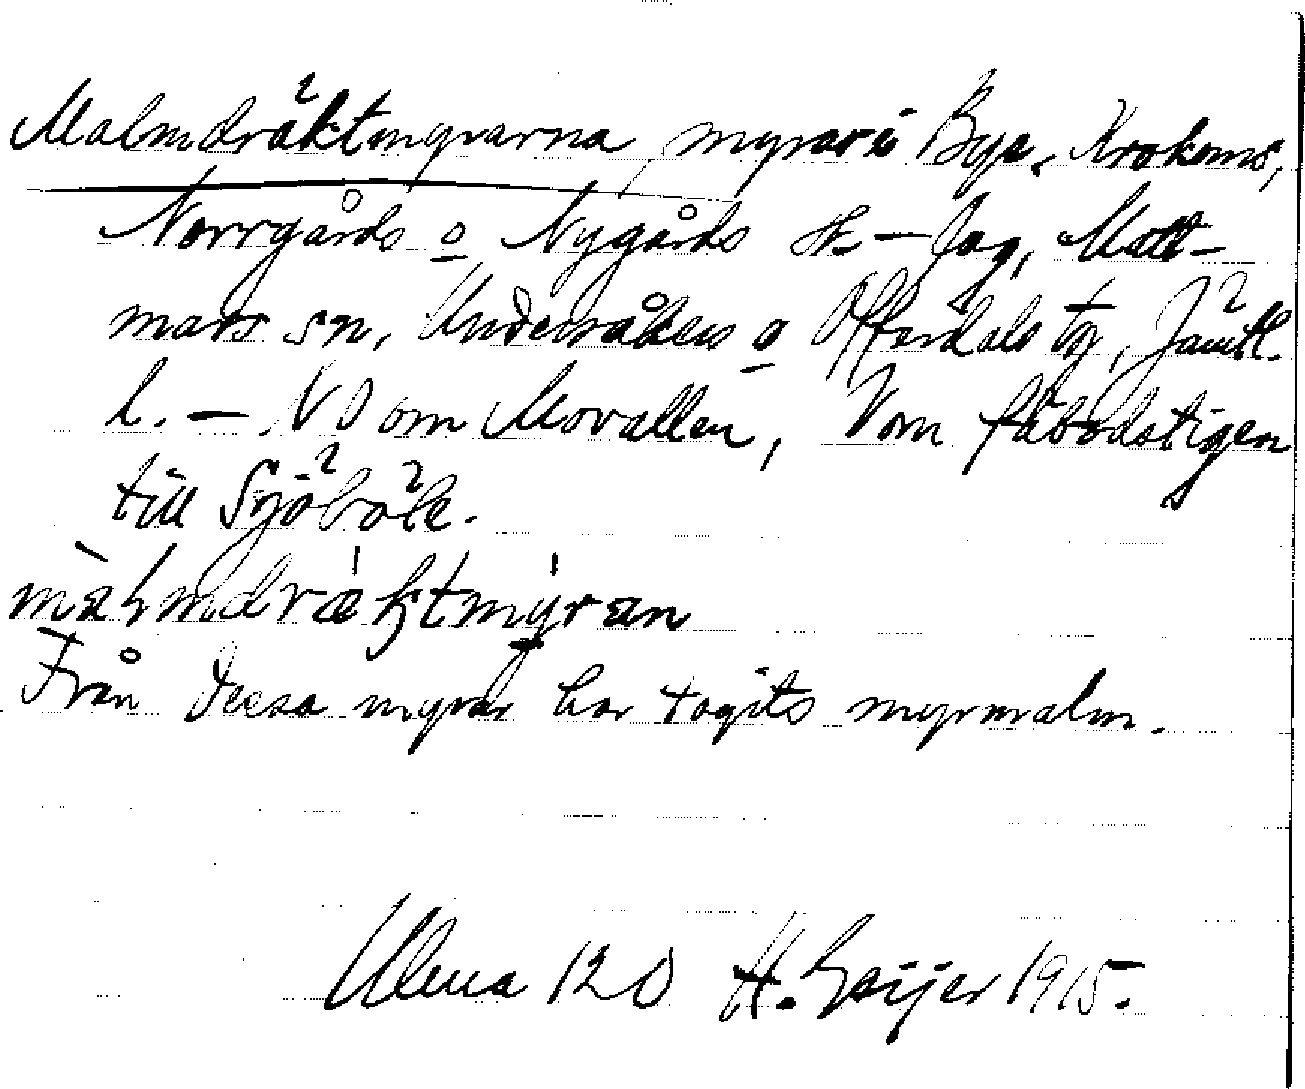 Malmdräktmyrarna, myrar i Bye, Krokoms,
Norrgårds o Nygårds sk-lag, Matt-
mars sn, Undersåkers o Offerdals tg, Jämtl.
l. — NO om Movallen, V om fäbodstigen
till Sjöböle.
Från dessa myrar har tagits myrmalm.
Ulma 120 H. Geijer 1915.